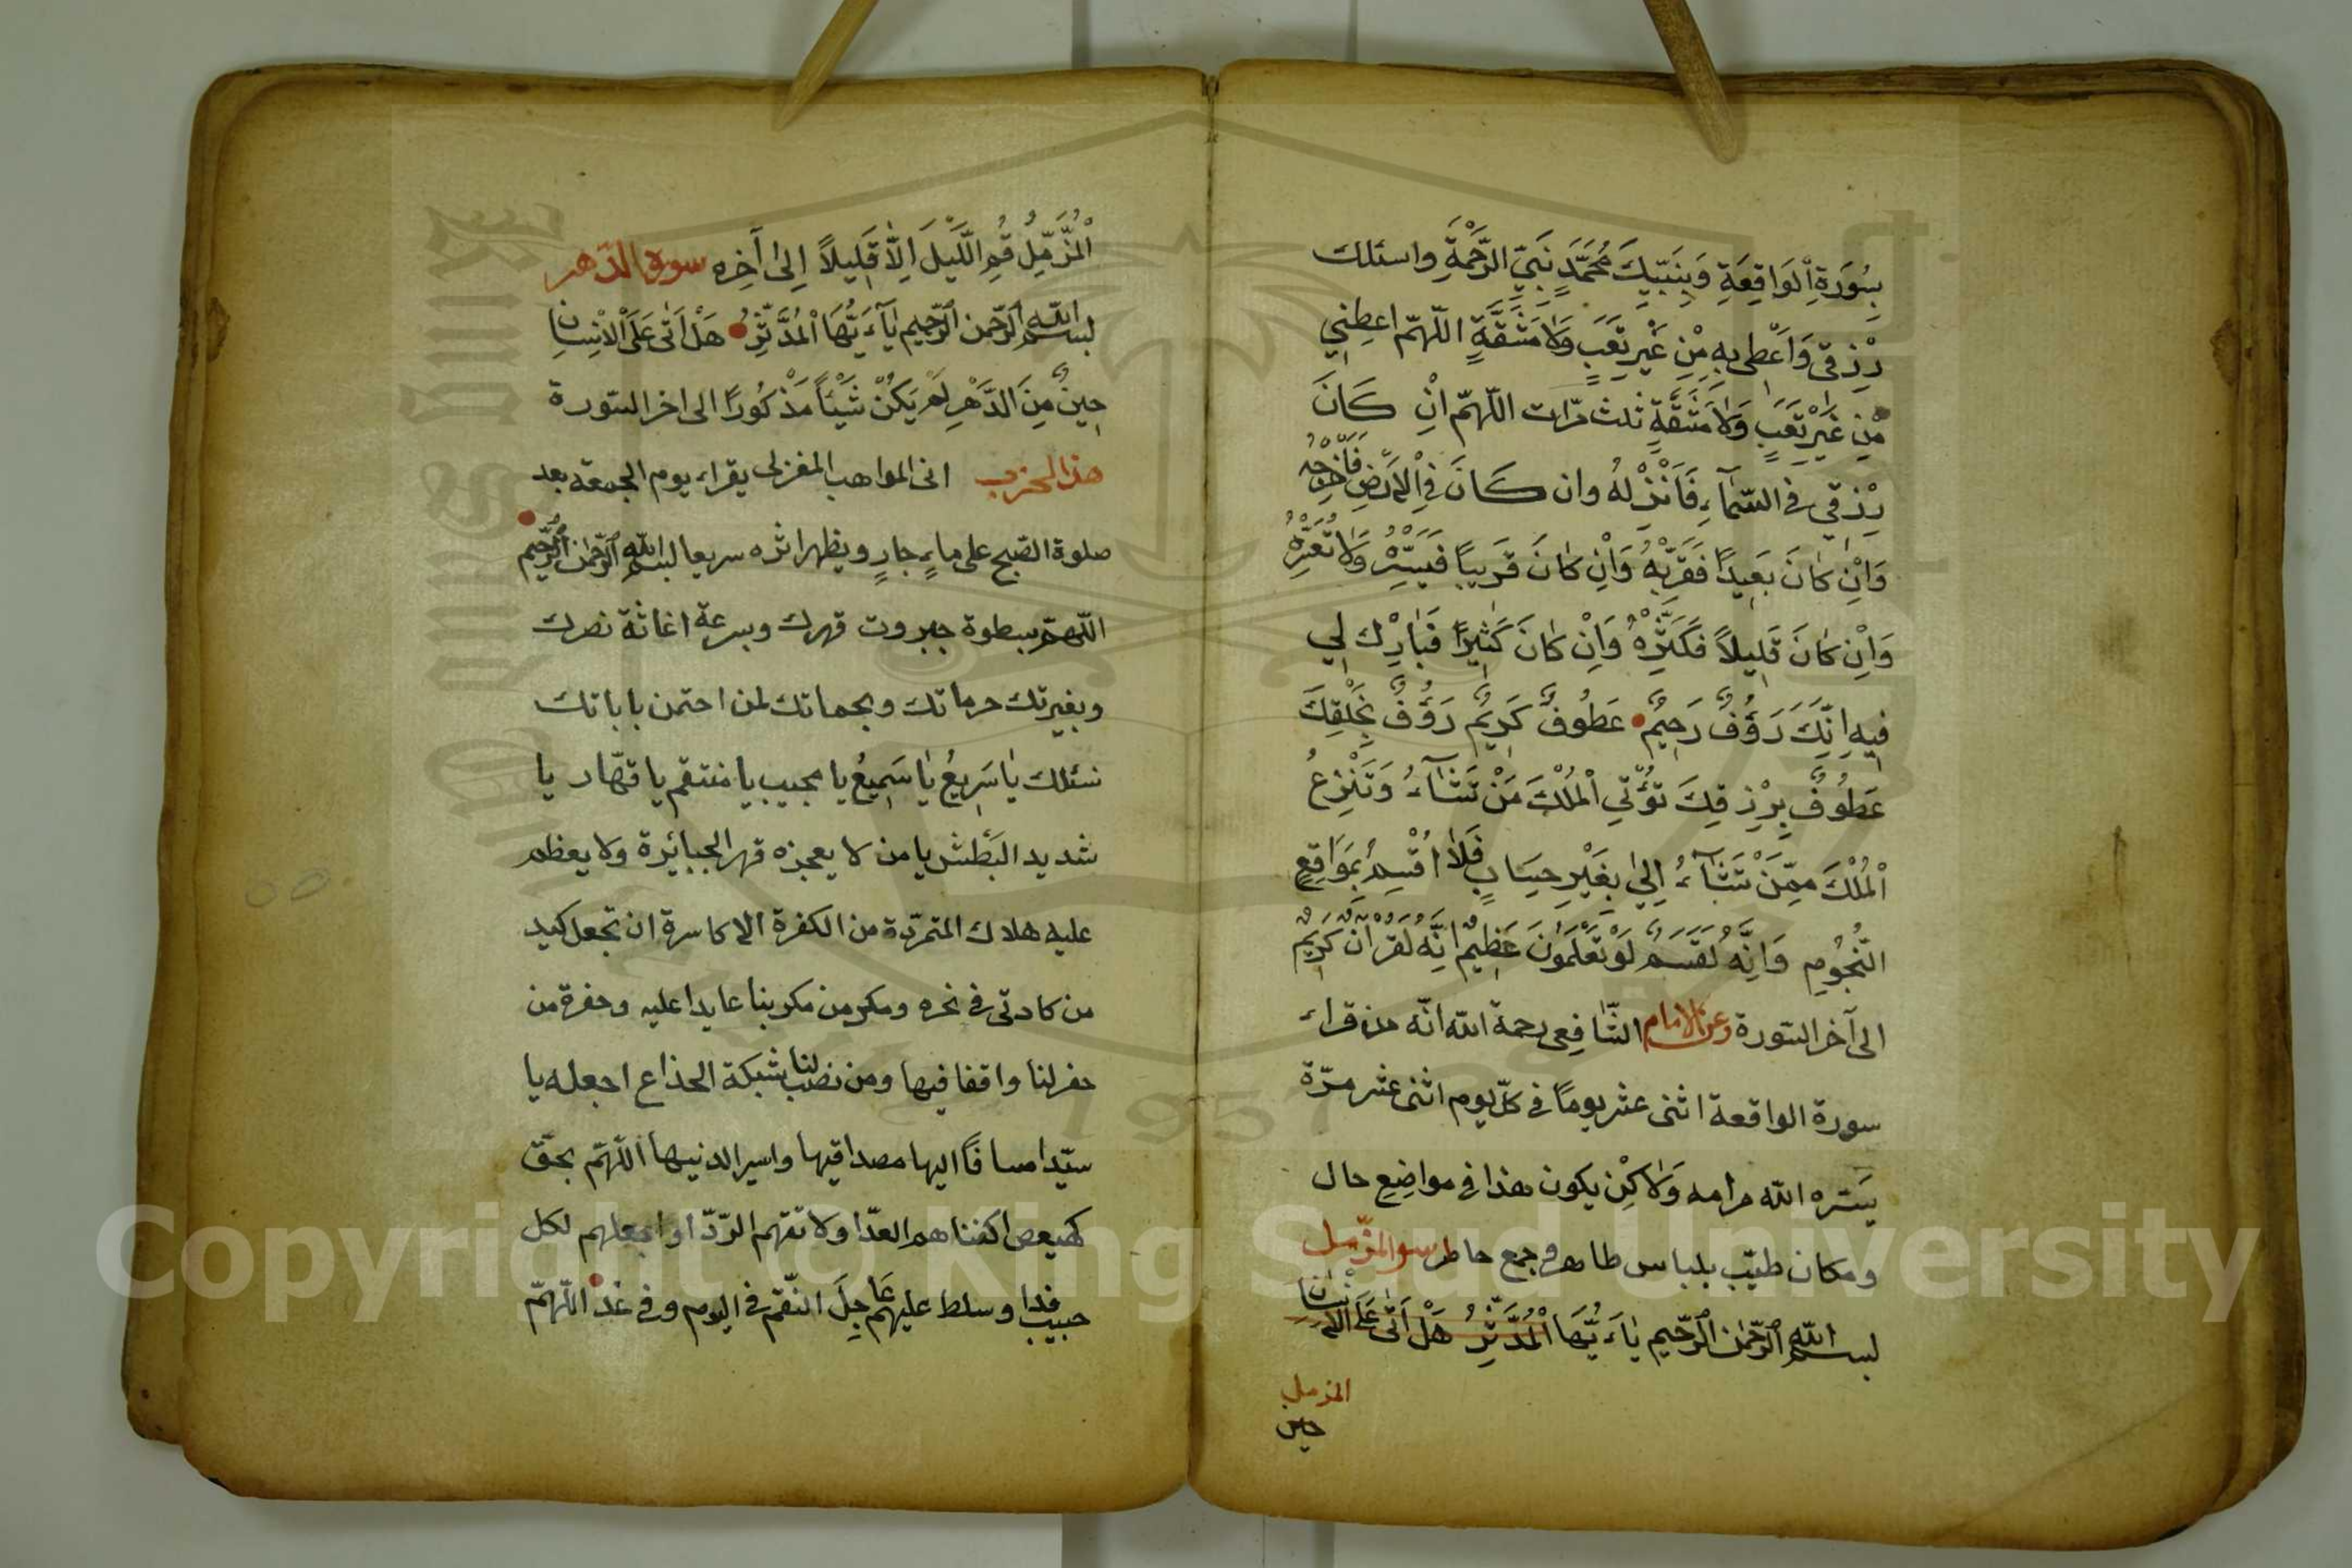 بِسُورَةِ الْوَاقِعَةِ وَبِنَبِيِّكَ مُحَمَّدٍ نَبِيِّ الرَّحْمَةِ واسئلك
رِزْقي وَاَعْطي بِهِ مِنْ غَيْرِ تَعَبٍ وَلَا مَشَقَّةٍ اللّهمّ اعطِني
مِنْ غَيْرِ تَعَبٍ وَلَا مَشَقَّةٍ ثلث مرّات اللّهمّ انْ كَانَ
رِزْقِي فِي السَّمَآءِ فَاَنْزِلْهُ وان كَانَ فِي الْاَرْضِ فَاَخْرِجْهُ
وَاِنْ كَانَ بَعِيدًا فَقَرِّبْهُ وَاِنْ كَانَ قَرِيبًا فَيَسِّرْهُ وَلَا تُعَسِّرْهُ
وَاِنْ كَانَ قَلِيلاً فَكَثِّرْهُ وَاِنْ كَانَ كَثِيرًا فَبَارِكْ لِي
فِيهِ اِنَّكَ رَؤُفٌ رَحِيمٌ عَطُوفٌ كَرِيمٌ رَؤُفٌ بِخَلْقِكَ
عَطُوفٌ بِرِزْقِكَ تُؤْتِي الْمُلْكَ مَنْ تَشَآءُ وَتَنْزِعُ
الْمُلْكَ مِمَّنْ تَشَآءُ اِلىٰ بِغَيْرِ حِسَابٍ فَلَا اُقْسِمُ بِمَوَاقِعِ
النُّجُومِ وَاِنَّهُ لَقَسَمٌ لَوْ تَعْلَمُونَ عَظِيمٌ اِنَّهُ لَقُرْآنٌ كَرِيمٌ
الى آخر السّورة وعن الامام الشّافِعى رحمة الله انّه من قراء
سورة الواقعة اثنى عشر يومًا في كلّ يوم اثنى عشر مرّة
يَسّره الله مرامه وَلاكِنْ يكون هذا في مواضِعِ حال
ومكان طيّب بلباس طاهر وجمع خاطر سورة المزّمل
بسم الله الرّحمن الرّحيم يَاءَيُّهَا الْمُدَّثِّرُ هَلْ اَتٰى عَلَى الْاِنْسَانِ
المزمل
حين
الْمُزَّمِّلُ قُمِ اللَّيْلَ اِلَّا قَلِيلاً اِلىٰ آخِرِه سورة الدّهر
بسم الله الرّحمن الرّحيم يَآءَيُّهَا الْمُدَّثِّرُ هَلْ اَتٰى عَلَى الْاِنْسَانِ
حِينٌ مِنَ الدَّهْرِ لَمْ يَكُنْ شَيْئًا مَذْكُورًا الى اخر السّورة
هذا الحزب انى المواهب المغزلى يقراء يوم الجمعة بعد
صلوة الصّبح على ماءٍ جارٍ ويظهر اثره سريعا بسم الله الرّحمن الرّحيم
اللّهمّ بسطوة جبروت قهرك وبسرعة اغاثة نصرك
وبغيرتك حرماتك وبحماتك لمن احتمن باباتك
نسئلك يَا سَرِيعُ يَا سَمِيعُ يا مجيب يا منتقم يا قهّار يا
شديد البَطش يا من لا يعجزه قهر الجبائرة ولا يعظم
عليه هلاك المتمرّدة من الكفرة الاكاسرة ان تجعل كيد
من كادتى في نحره ومكر من مكر بنا عايدا عليه وحفرة من
حفر لنا واقفا فيها ومن نصب لنا شبكة الخذاع اجعله يا
سيّدا مساقًا اليها مصداقيها واسير الدنيها اللّهمّ بحقّ
كهيعص اكفنا هم العدّا ولا تقهم الرّدّا واجعلهم لكل
حبيب فدا وسلط عليهم عَاجِلَ النّقم في اليوم وفي غد اللّهمّ
Copyright © King Saud University
1957